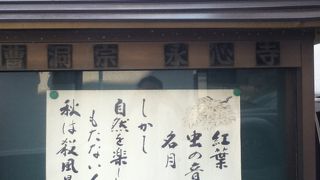 曹洞宗 永心寺
紅葉
虫の音
名月
しかし
自然を楽し
もたない人
秋は殺風景